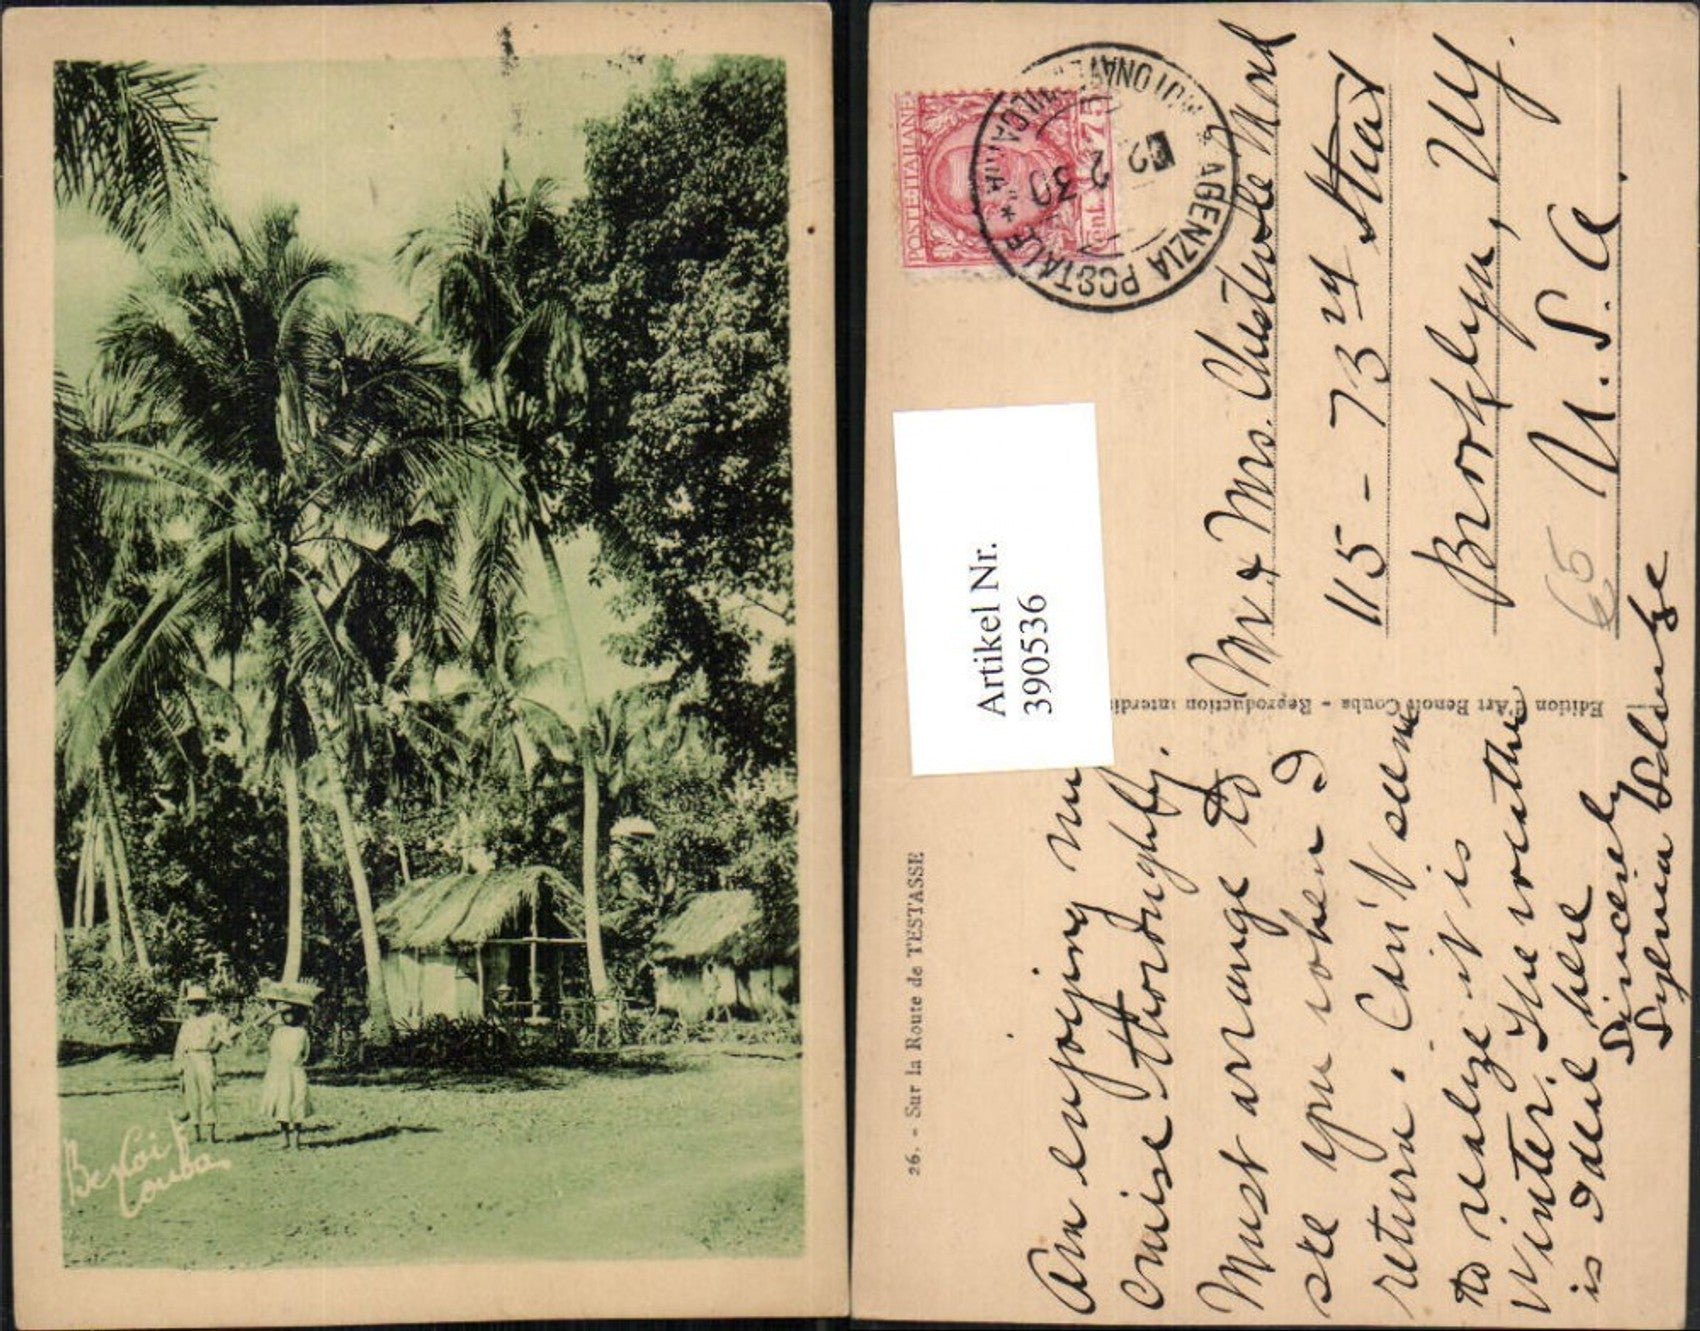 Benoit
Couba
26. - Sur la Route de TESTASSE
Edition d'Art Benoit Couba - Reproduction interdi
Artikel Nr.
3905536
POSTE ITALIANE
Cent. 75
AGENZIA POSTALE
2 30
Am enjoying
cruise thoroughly.
Must arrange to
see you when I
return. Can't seem
to realize it is
winter. The weather
is ideal here
Sincerely
Sylvia
Mr & Mrs.
115 - 73rd Street
Brooklyn, NY.
U.S.A.
65